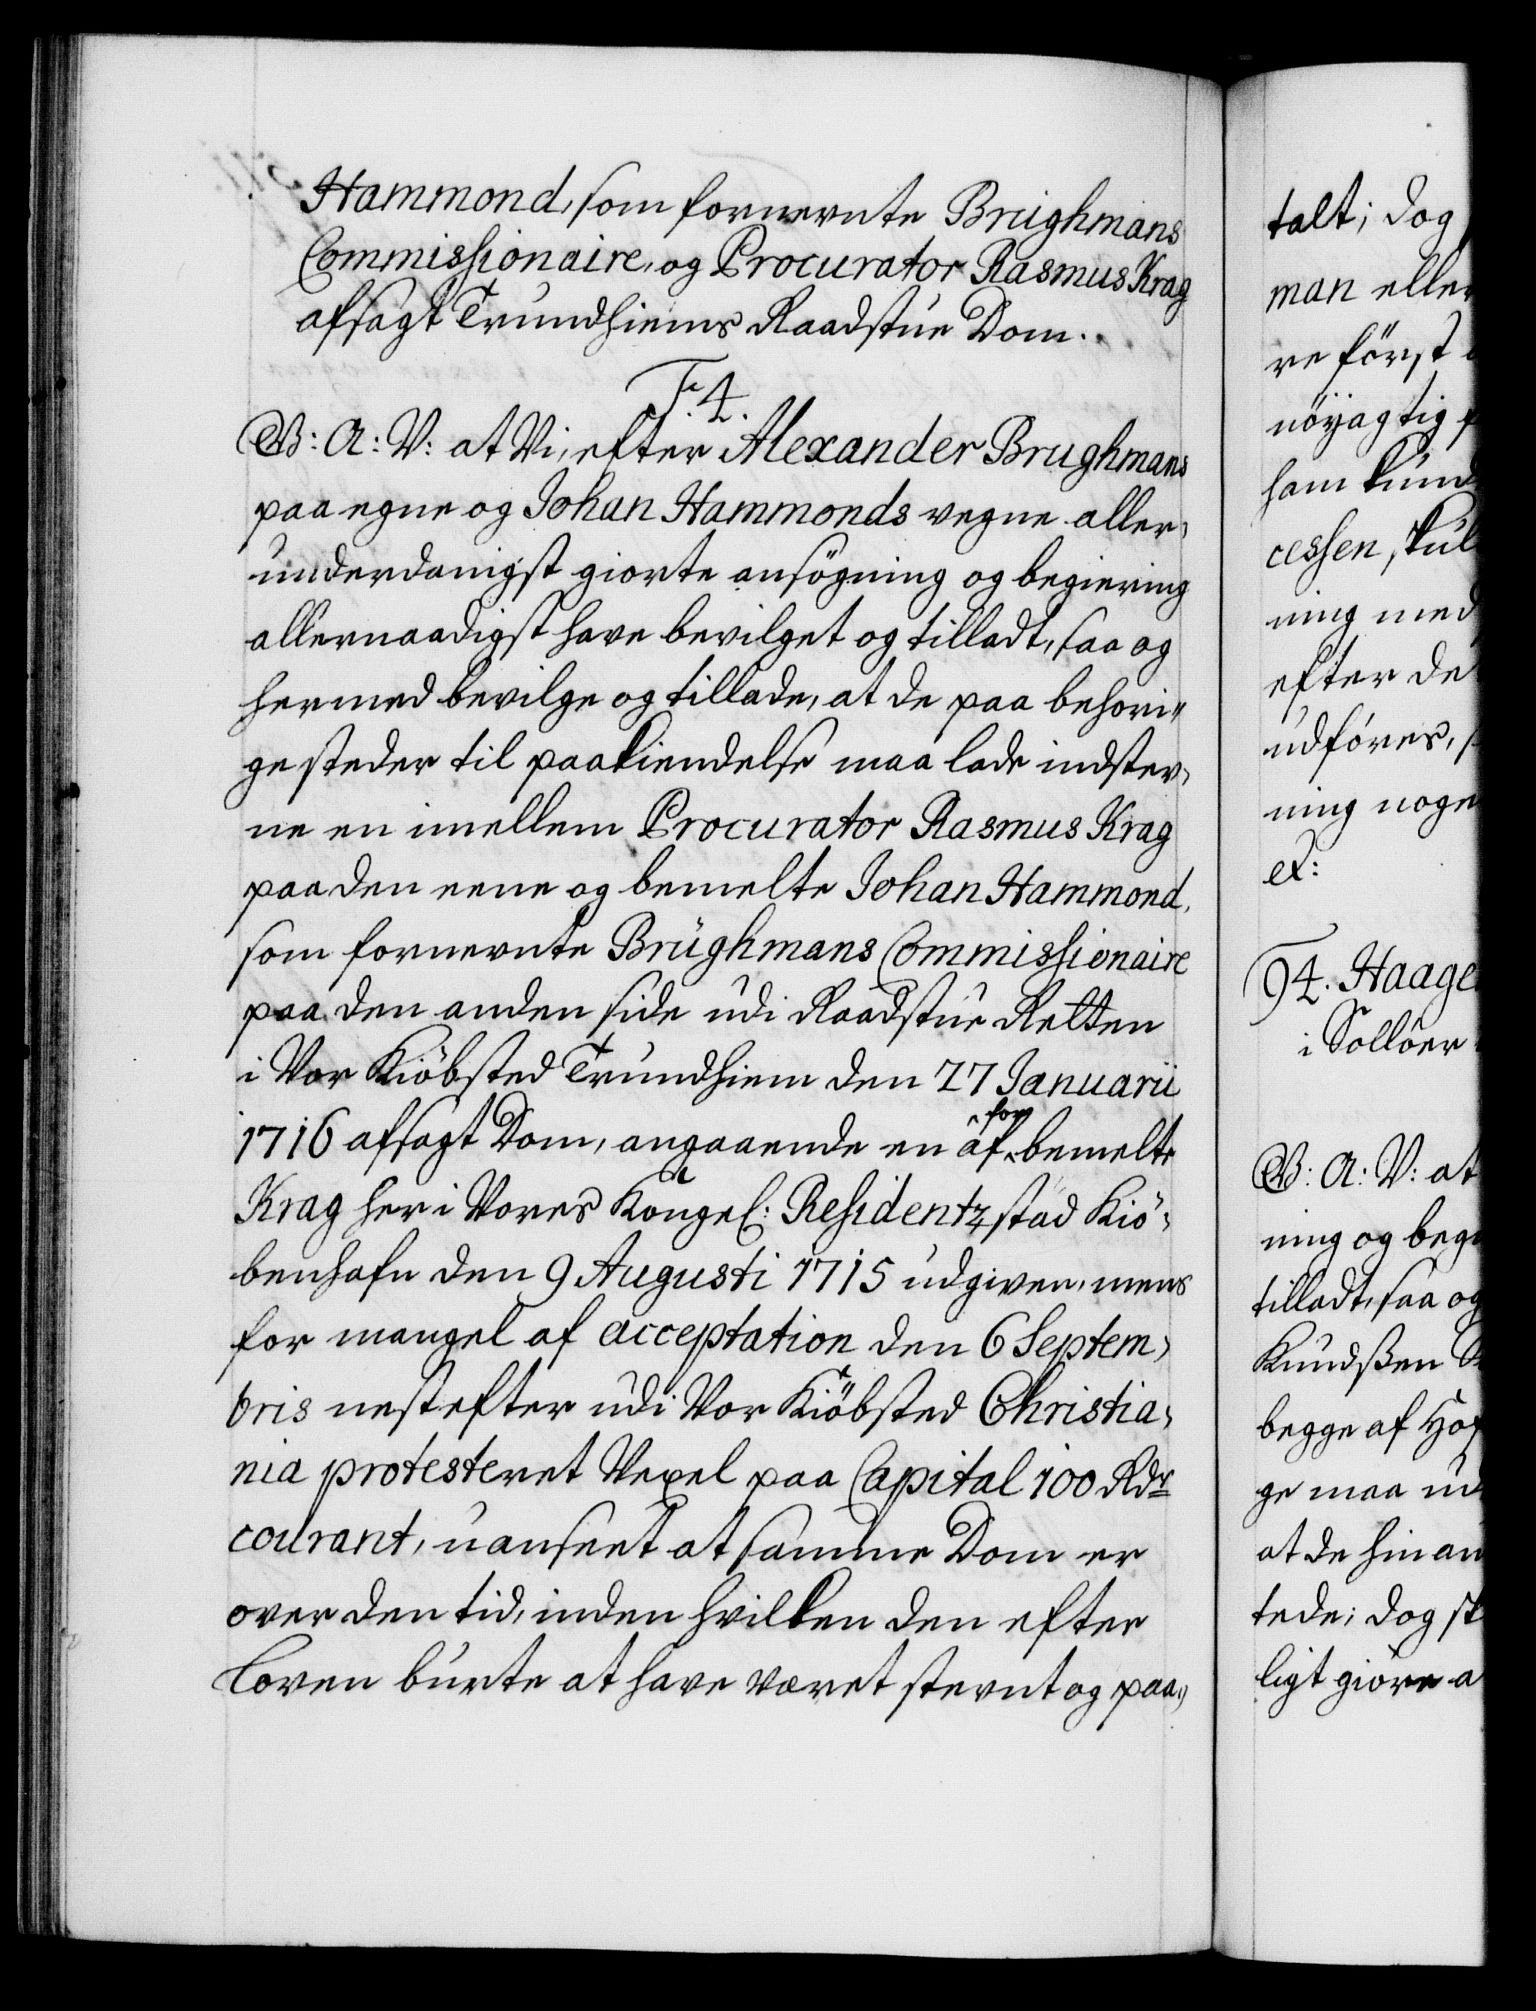 Hammond, som fornevnte Brughmans
Commissionaire, og Procurator Rasmus Krag
afsagt Trundhiems Raadstue Dom.
F. 4.
G: A: V: at Vi, efter Alexander Brughmans
paa egne og Johan Hammonds vegne aller,
underdanigst giorte ansögning og begiering
allernaadigst have bevilget og tilladt, saa og
hermed bevilge og tillade, at de paa behori"
ge steder til paakiendelse maa lade indstev,
ne en imellem Procurator Rasmus Krag
paa den eene og bemelte Johan Hammond,
som fornevnte Brüghmans Commissionaire
paa den anden side udi Raadstue Retten
i Vor Kiöbsted Trundhiem den 27 Januarii
1716 afsagt Dom, angaaende en af for bemelte
Krag her i Vores Kongel: Residentz stad Kiö,
benhafn den 9 Augusti 1715 udgiven, mens
for mangel af acceptation den 6 Septem,
bris nest efter udi Vor Kiöbsted Christia,
nia protesteret Vexel paa Capital 100 Rdr
courant, uanseet at samme Dom er
over den tid, inden hvilken den efter
Loven burte at have været stevnt og paa,,
talt; dog
man eller
re först
nöyagtig
ham kund
cessen, skul
ning med
efter de
udföres,
ning noge
et:
94. Haage
i Sollöer
G: A: V: at
ning og begi
tilladt, saa og
Knudßen
begge af Hof
ge maa ud
at de hinan
tede; dog sk
ligt giöre a